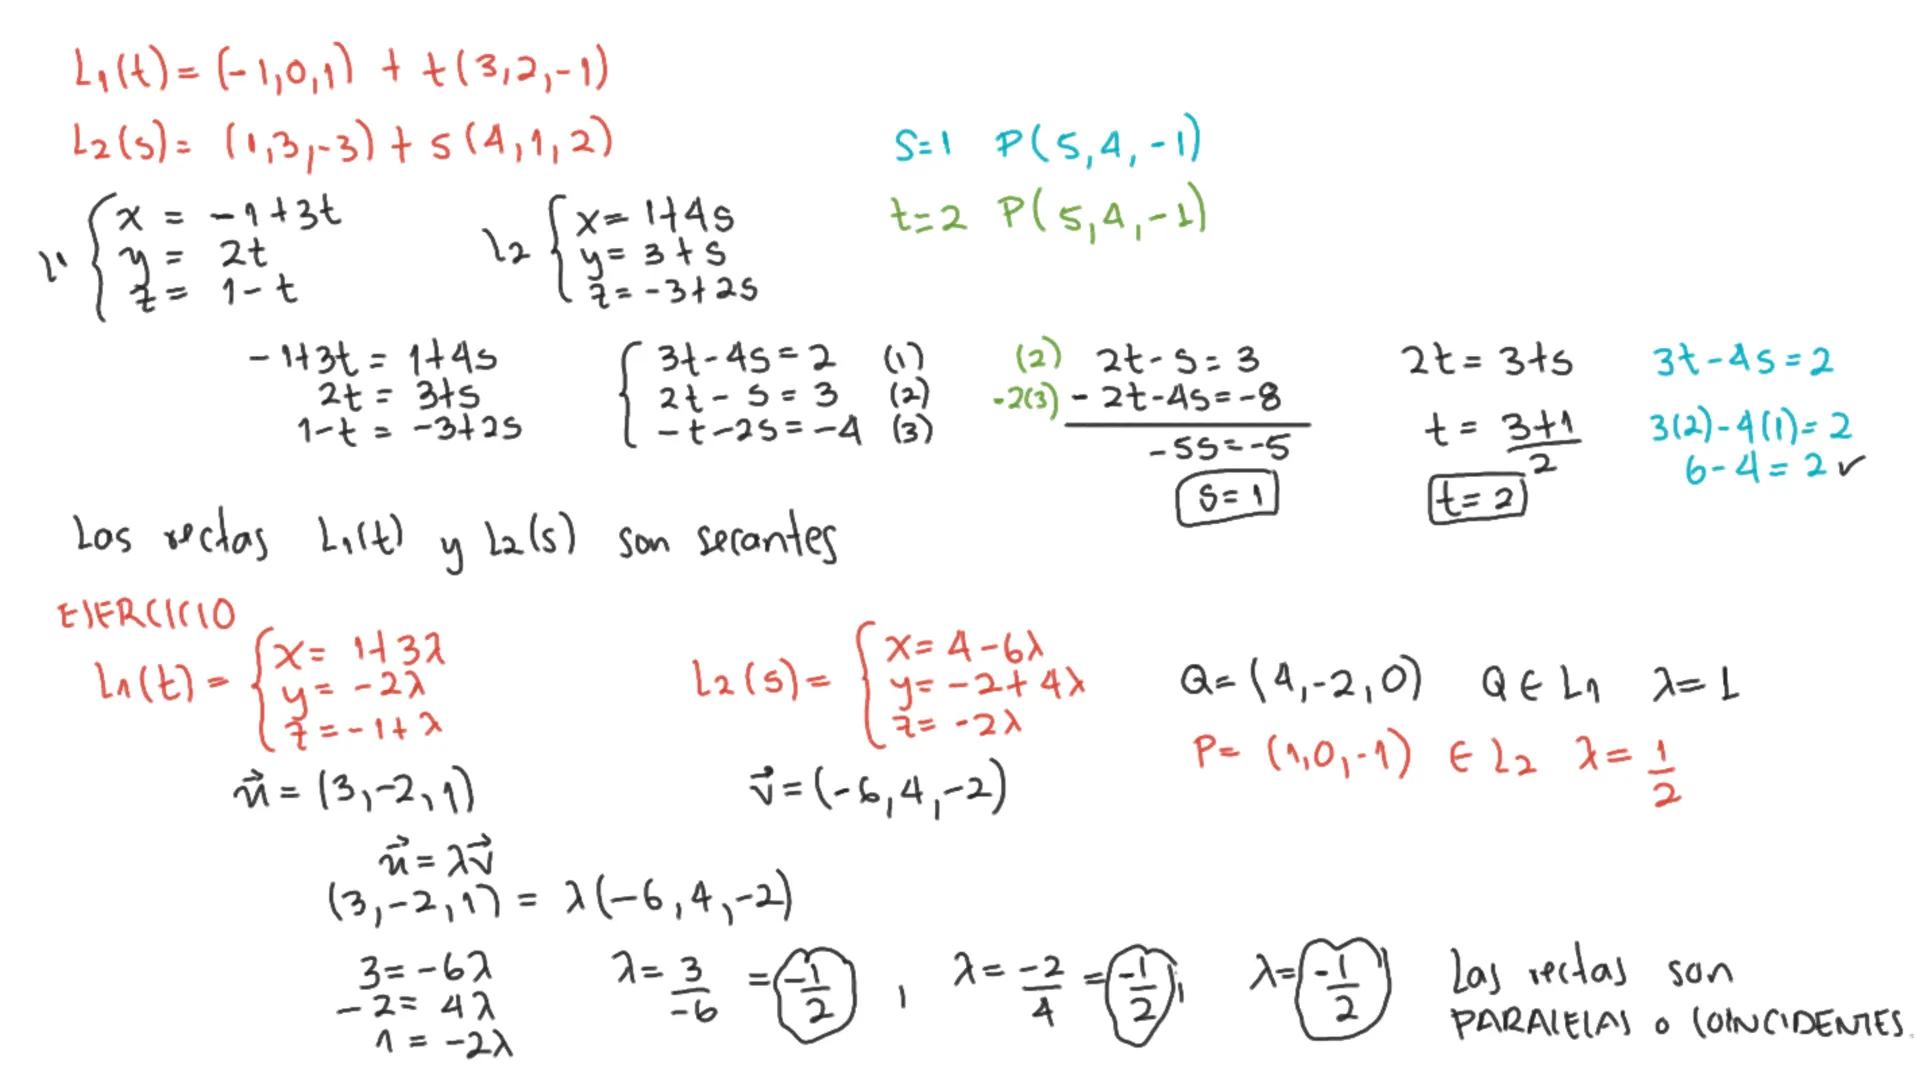 L₁(t) = (-1,0,1) + t(3,2,-1)
L₂(s) = (1,3,-3) + s(4,1,2)
S=1 P(5,4,-1)
t=2 P(5,4,-1)
x = -1+3t
y = 2t
z = 1-t
L2 x = 1+4s
y = 3+s
z = -3+2s
-1+3t = 1+4s
2t = 3+s
1-t = -3+2s
3t-4s=2 (1)
2t-s=3 (2)
-t-2s=-4 (3)
(2) 2t-s=3
-2(3) -2t-4s=-8
-5s=-5
s=1
2t=3+s
t = 3+1/2
t=2
3t-4s=2
3(2)-4(1)=2
6-4=2 ✓
Las rectas L₁(t) y L₂(s) son secantes
EJERCICIO
L₁(t) = x = 1+3λ
y = -2λ
z = -1+λ
L₂(s) = x = 4-6λ
y = -2+4λ
z = -2λ
Q=(4,-2,0) Q∈L₁ λ=1
P=(1,0,-1) ∈ L₂ λ=1/2
u⃗ = (3,-2,1)
v⃗ = (-6,4,-2)
u⃗ = λv⃗
(3,-2,1) = λ(-6,4,-2)
3=-6λ
-2=4λ
1=-2λ
λ = 3/-6 = -1/2 , λ = -2/4 = -1/2 , λ = -1/2
Las rectas son
PARALELAS o COINCIDENTES.